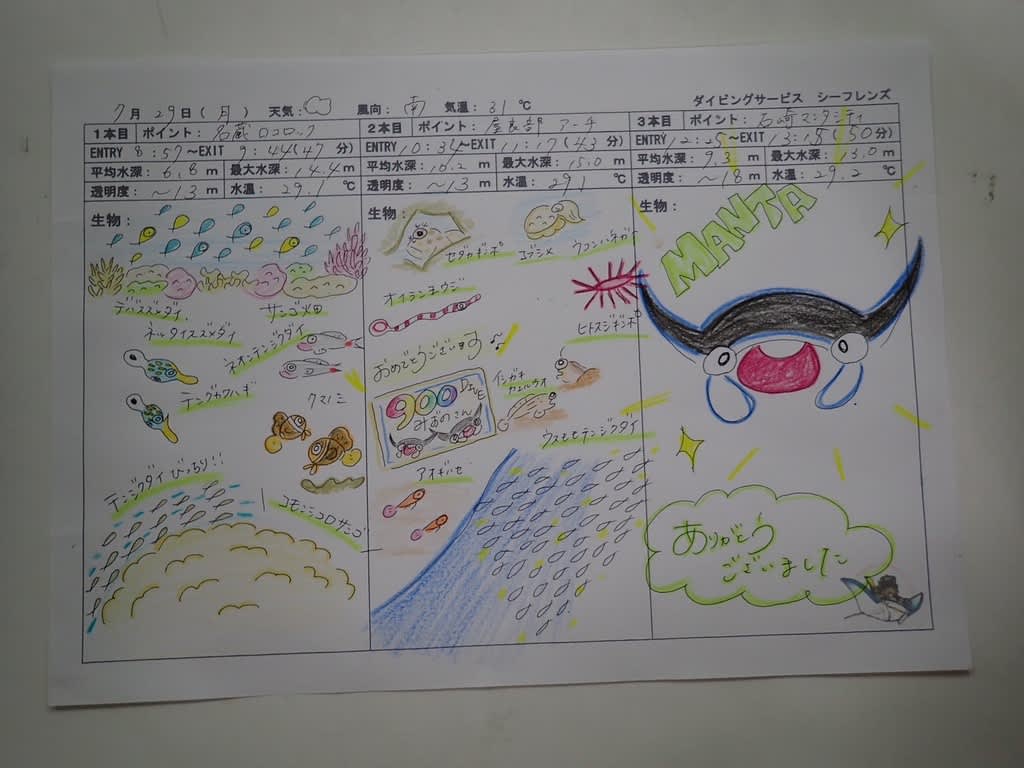 ダイビングサービス シーフレンズ
7月 29日(月) 天気: 風向: 南 気温: 31℃
1本目 ポイント: 名蔵ロコロック
ENTRY 8:57~EXIT 9:44(47分)
平均水深: 6.8m 最大水深: 14.4m
透明度: ~13m 水温: 29.1℃
生物:
デバスズメダイ
サンゴ畑
ネッタイスズメダイ
ネオンテンジクダイ
テングカワハギ
クマノミ
テンジクダイびっちり!!
コモンシコロサンゴ
2本目 ポイント: 屋良部 アーチ
ENTRY 10:34~EXIT 11:17(43分)
平均水深: 10.2m 最大水深: 15.0m
透明度: ~13m 水温: 29.1℃
生物:
セダカギンポ
コブシメ
オイランヨウジ
ヒトスジギンポ
おめでとうございます♪
900 DIVE
みおのさん
イシガキカエルウオ
ウスモモテンジクダイ
アオギハゼ
3本目 ポイント: 石崎マンタシティ
ENTRY 12:25~EXIT 13:15(50分)
平均水深: 9.3m 最大水深: 13.0m
透明度: ~18m 水温: 29.2℃
生物:
MANTA
ありがとう
ございました